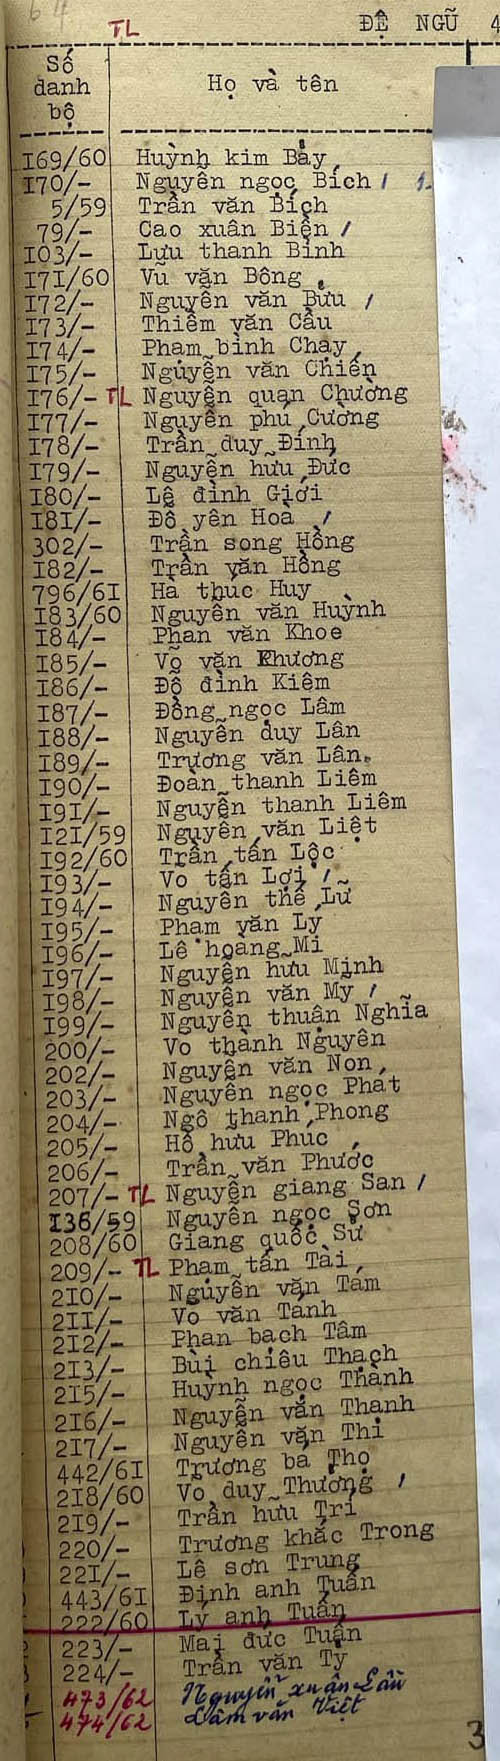 64
TL ĐỆ NGŨ 4
Số danh bộ Họ và tên
I69/60 Huỳnh kim Bảy
I70/- Nguyên ngọc Bích
5/59 Trần văn Bích
79/- Cao xuân Biện
I03/- Lưu thanh Bình
I7I/60 Vũ văn Bông
I72/- Nguyễn văn Bửu
I73/- Thiềm văn Cầu
I74/- Phạm bình Chay
I75/- Nguyễn văn Chiến
I76/- TL Nguyễn quan Chường
I77/- Nguyễn phú Cường
I78/- Trần duy Đính
I79/- Nguyễn hữu Đức
I80/- Lê đình Giới
I8I/- Đỗ yên Hoà
302/- Trần song Hồng
I82/- Trần văn Hồng
796/6I Hà thúc Huy
I83/60 Nguyễn văn Huỳnh
I84/- Phan văn Khoe
I85/- Võ văn Khương
I86/- Đỗ đình Kiệm
I87/- Đồng ngọc Lâm
I88/- Nguyễn duy Lân
I89/- Trương văn Lân
I90/- Đoàn thanh Liêm
I9I/- Nguyễn thanh Liêm
I2I/59 Nguyễn văn Liệt
I92/60 Trần tấn Lộc
I93/- Vo tấn Lợi
I94/- Nguyễn thế Lữ
I95/- Phạm văn Lý
I96/- Lê hoàng Mi
I97/- Nguyễn hữu Minh
I98/- Nguyễn văn Mỹ
I99/- Nguyễn thuận Nghĩa
200/- Vo thành Nguyên
202/- Nguyễn văn Non
203/- Nguyễn ngọc Phát
204/- Ngô thanh Phong
205/- Hồ hữu Phúc
206/- Trần văn Phước
207/- TL Nguyễn giang San
I36/59 Nguyễn ngọc Sơn
208/60 Giang quốc Sử
209/- TL Phạm tấn Tài
2I0/- Nguyễn văn Tam
2II/- Vo văn Tánh
2I2/- Phan bạch Tâm
2I3/- Bùi chiêu Thạch
2I5/- Huỳnh ngọc Thành
2I6/- Nguyễn văn Thạnh
2I7/- Nguyễn văn Thi
442/6I Trương bá Thọ
2I8/60 Vo duy Thường
2I9/- Trần hữu Trí
220/- Trương khắc Trong
22I/- Lê sơn Trung
443/6I Định anh Tuấn
222/60 Lý anh Tuấn
223/- Mai đức Tuấn
224/- Trần văn Tỵ
473/62 Nguyễn xuân Lầu
474/62 Lâm văn Việt
3